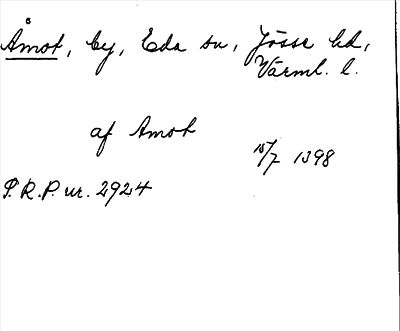 Åmot, by, Eda sn, Jösse hd,
Värml. l.
af Amot
15/7 1398
S.R.P. nr. 2924